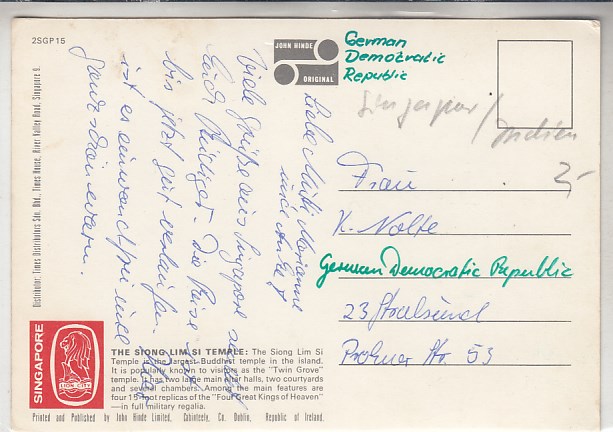 2SGP15
JOHN HINDE
ORIGINAL
German
Democratic
Republic
Singapur / Indien
Liebe Mutti, Marianne
und
Viele Grüße aus Singapore sendet
Euch Rüdiger. Die Reise ist
bis jetzt gut verlaufen.
ist es einwandfrei
ganz schön warm.
Frau
K. Nolte
German Democratic Republic
23 Stralsund
Prohner Str. 53
Distributor: Times Distributors Sdn. Bhd., Times House, River Valley Road, Singapore 9.
SINGAPORE
LION CITY
THE SIONG LIM SI TEMPLE: The Siong Lim Si
Temple is the largest Buddhist temple in the island.
It is popularly known to visitors as the "Twin Grove"
temple. It has two large main altar halls, two courtyards
and several chambers. Among the main features are
four 15 foot replicas of the "Four Great Kings of Heaven"
—in full military regalia.
Printed and Published by John Hinde Limited, Cabinteely, Co. Dublin, Republic of Ireland.